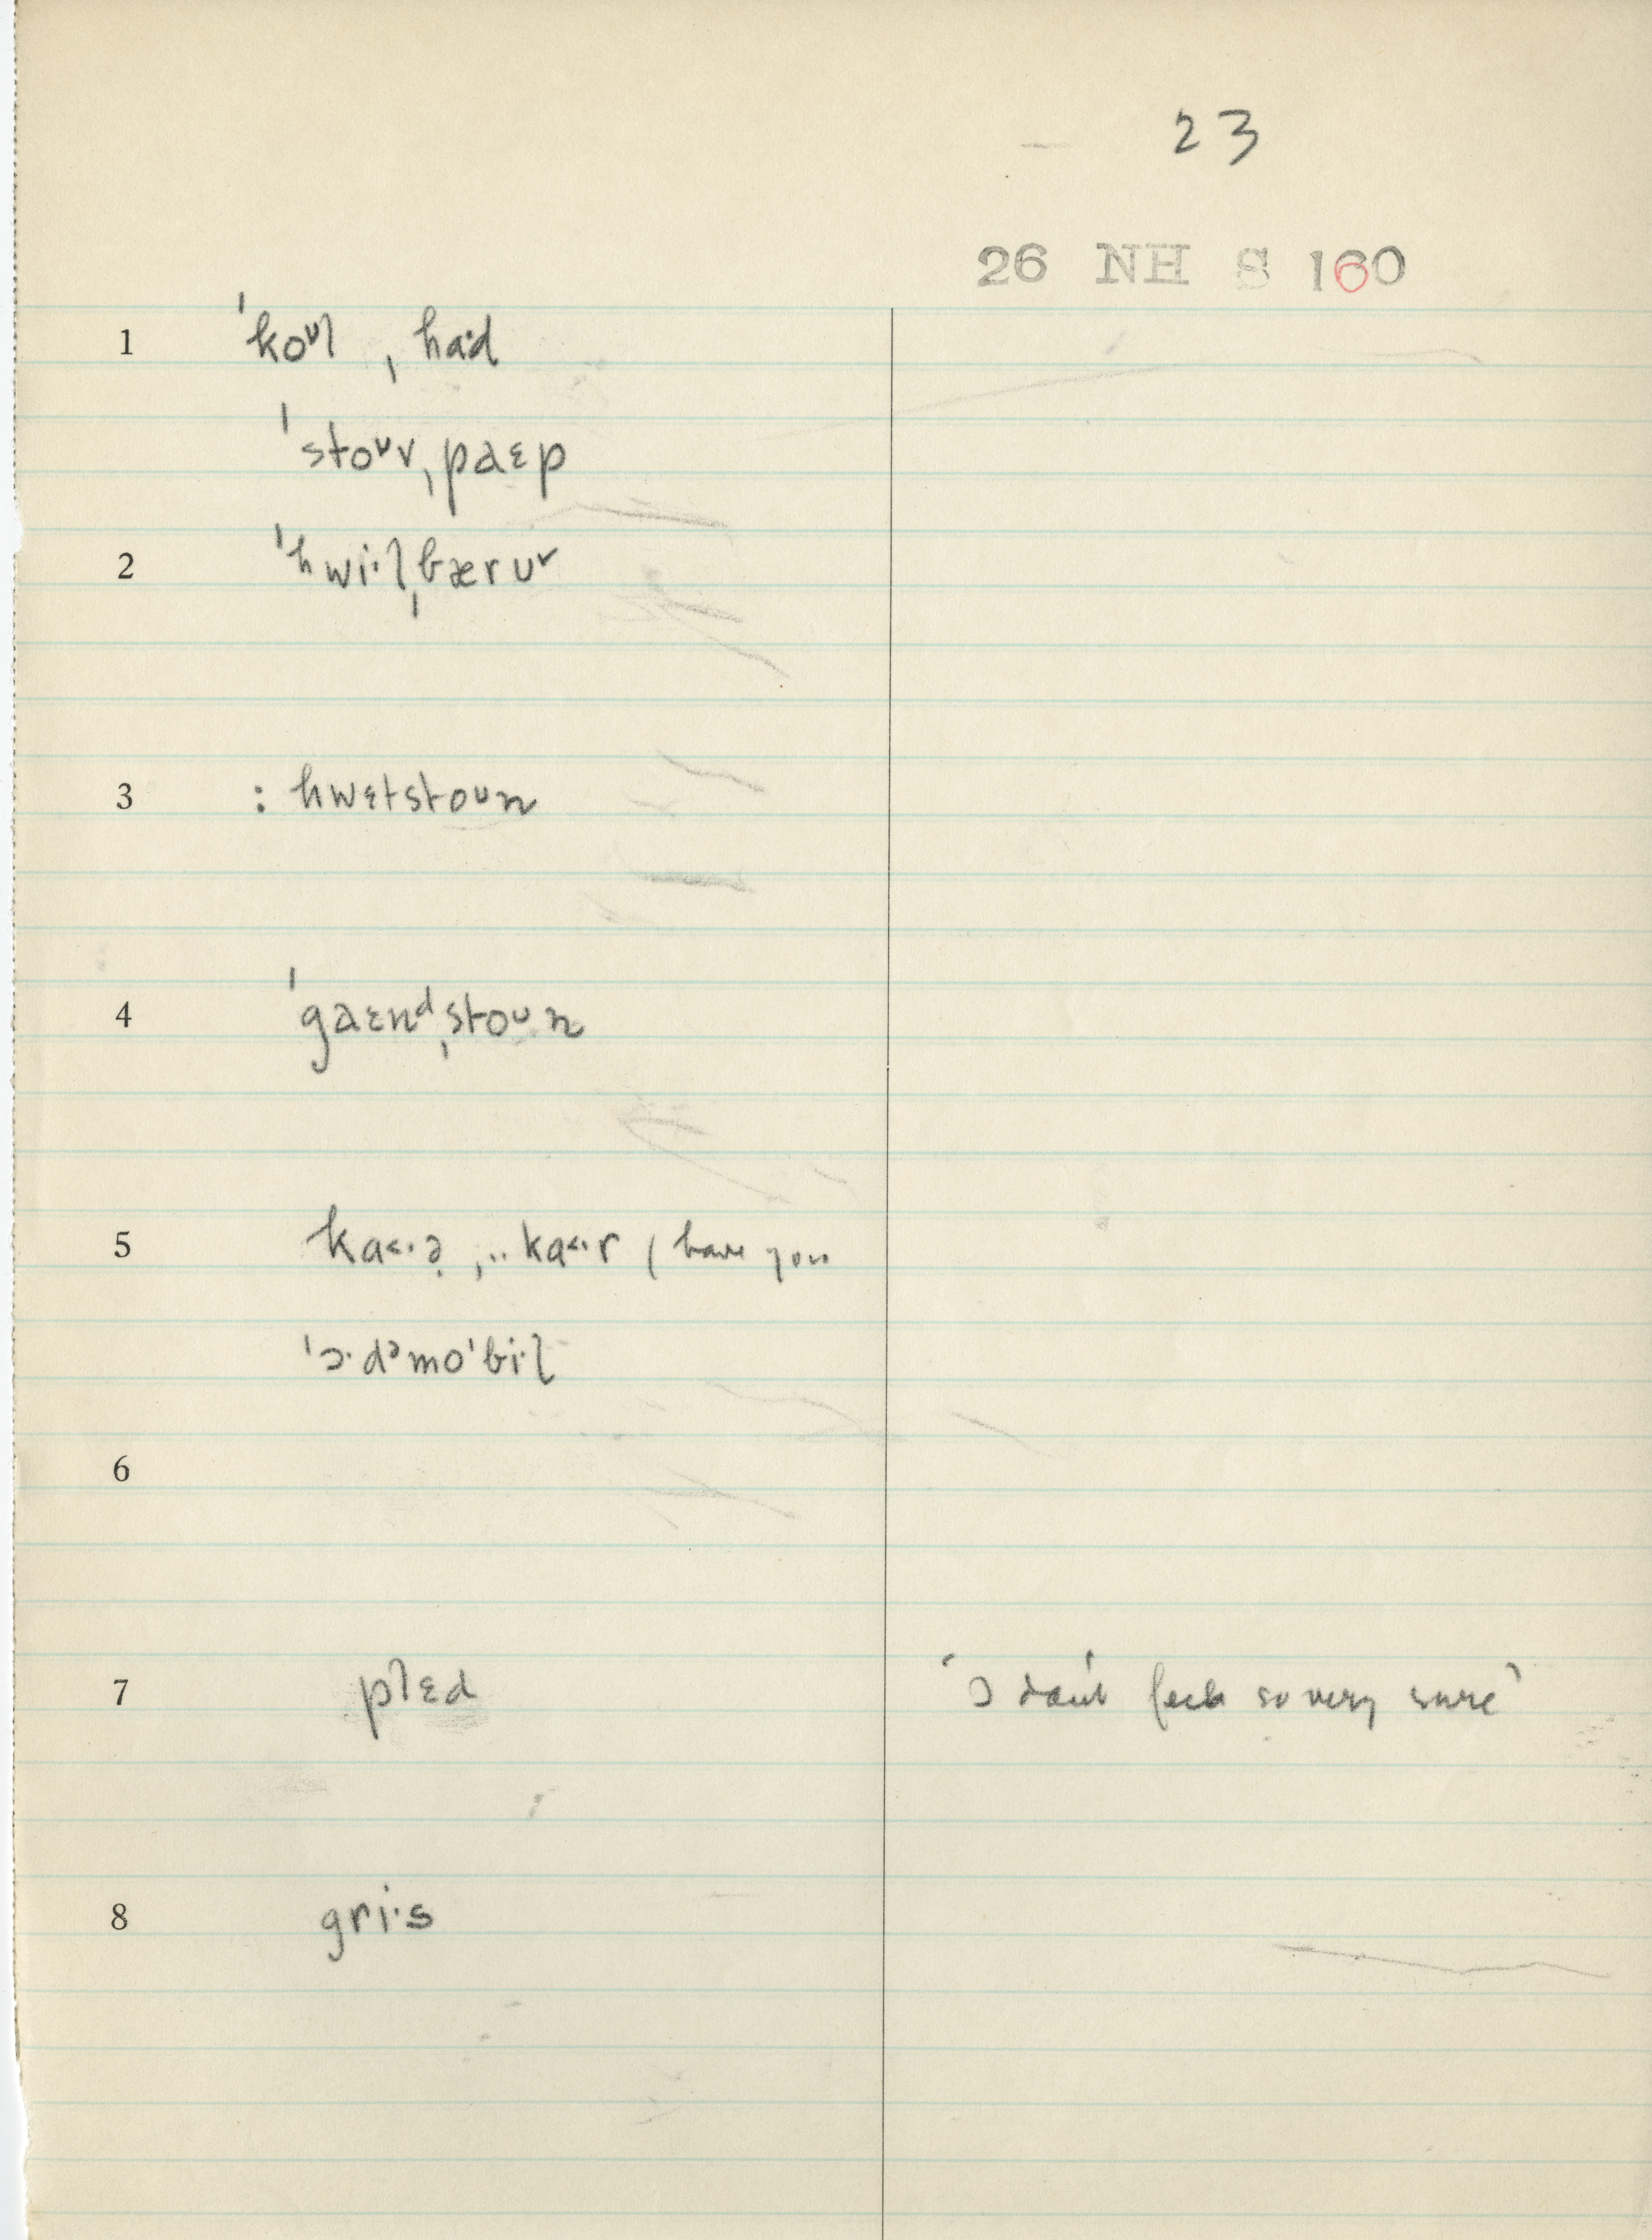 23
26 NH S 160
1 ˈkoᶷl ˌhɑ·d
ˈstoᶷvˌpaɛp
2 ˈhwi·lˌbærʊ˅
3 : hwɛtstoᶷn
4 ˈgaɛnᵈˌstoᶷn
5 ka<·ə̣ ,.. ka<·r ( have you
ˈɔ·dᵊmoˈbi·l
6
7 plɛd 'I don't feel so very sure'
8 gri·s